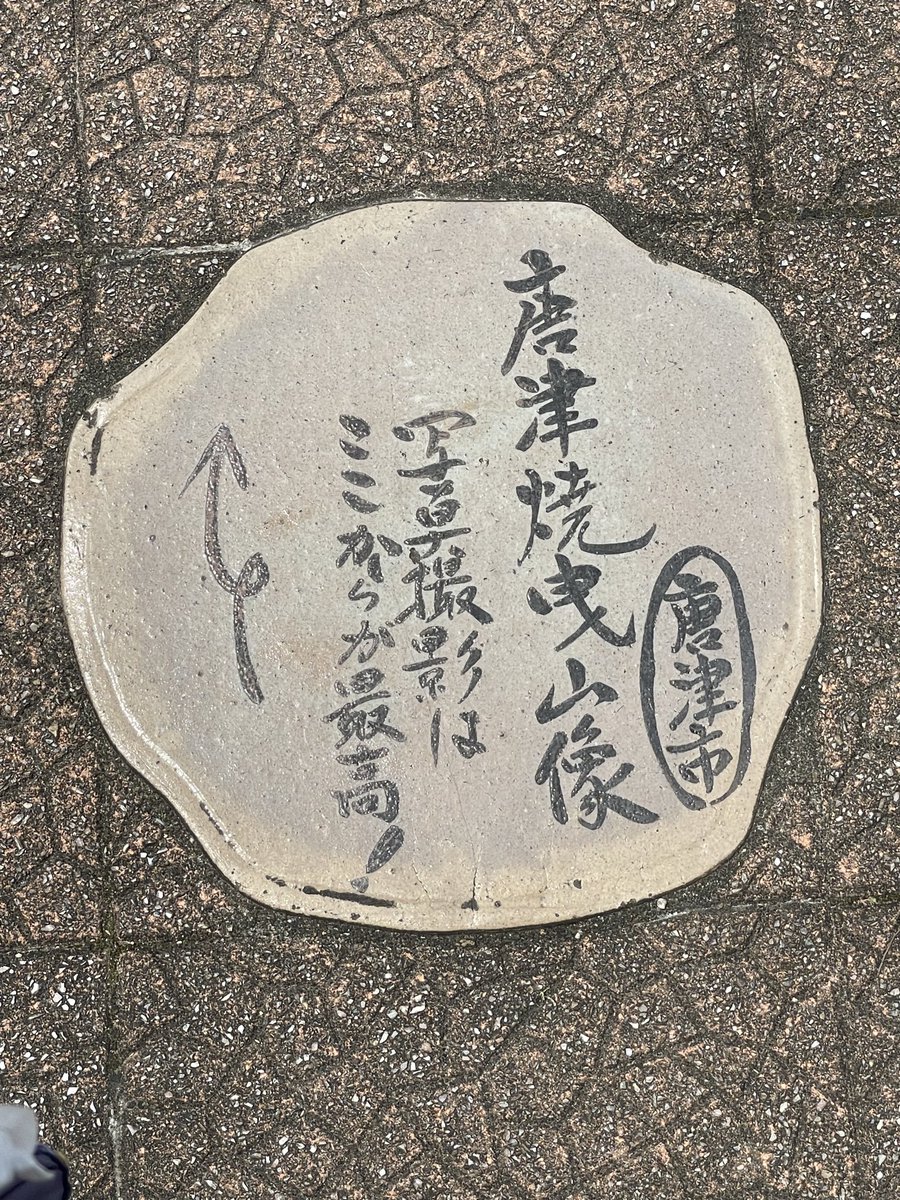 唐津焼曳山像
唐津市
写真撮影は
ここからが最高!